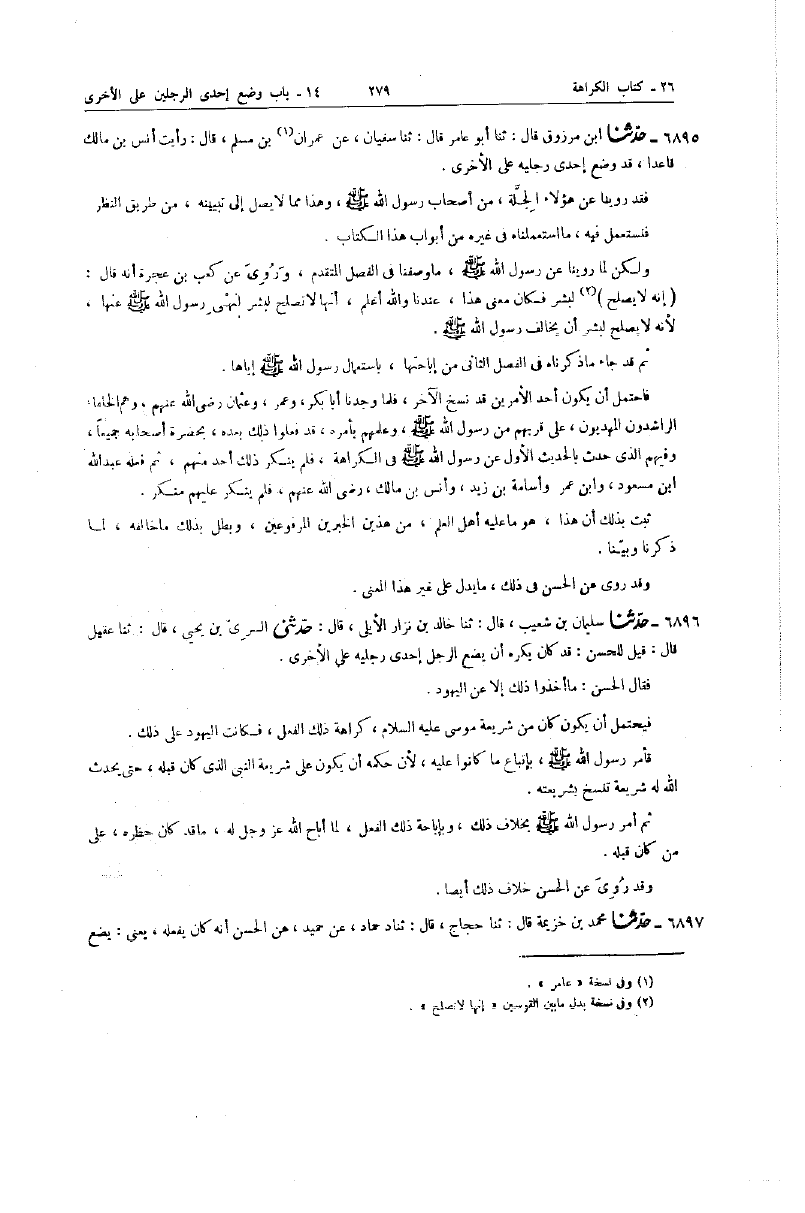 ٢٦ - كتاب الكراهة ٢٧٩ ١٤ - باب وضع إحدى الرجلين على الأخرى
٦٨٩٥ - حدثنا ابن مرزوق قال : ثنا أبو عامر قال : ثنا سفيان ، عن عمران(١) بن مسلم ، قال : رأيت أنس بن مالك
قاعدا ، قد وضع إحدى رجليه على الأخرى .
فقد روينا عن هؤلاء الجِلَّة ، من أصحاب رسول الله ﷺ ، وهذا مما لا يصل إلى تبيينه ، من طريق النظر
فنستعمل فيه ، ما استعملناه فى غيره من أبواب هذا الكتاب .
ولكن لما روينا عن رسول الله ﷺ ، ما وصفنا فى الفصل المتقدم ، ورُوِىَ عن كعب بن عجرة أنه قال :
( إنه لا يصلح )(٢) لبشر فكان معنى هذا ، عندنا والله أعلم ، أنها لا تصلح لبشر لنهى رسول الله ﷺ عنها ،
لأنه لا يصلح لبشر أن يخالف رسول الله ﷺ .
ثم قد جاء ما ذكرناه فى الفصل الثانى من إباحتها ، باستعمال رسول الله ﷺ إياها .
فاحتمل أن يكون أحد الأمرين قد نسخ الآخر ، فلما وجدنا أبا بكر، وعمر ، وعثمان رضى الله عنهم ، وهم الخلفاء
الراشدون المهديون ، على قربهم من رسول الله ﷺ ، وعلمهم بأمره ، قد فعلوا ذلك بعده ، بحضرة أصحابه جميعاً ،
وفيهم الذى حدث بالحديث الأول عن رسول الله ﷺ فى الكراهة ، فلم ينكر ذلك أحد منهم ، ثم فعله عبدالله
ابن مسعود ، وابن عمر وأسامة بن زيد ، وأنس بن مالك ، رضى الله عنهم ، فلم ينكر عليهم منكر .
ثبت بذلك أن هذا ، هو ما عليه أهل العلم ، من هذين الخبرين المرفوعين ، وبطل بذلك ما خالفه ، لما
ذكرنا وبيّنا .
وقد روى عن الحسن فى ذلك ، ما يدل على غير هذا المعنى .
٦٨٩٦ - حدثنا سليمان بن شعيب ، قال : ثنا خالد بن نزار الأيلى ، قال : حدثنى السرىّ بن يحيى ، قال : ثنا عقيل
قال : قيل للحسن : قد كان يكره أن يضع الرجل إحدى رجليه على الأخرى .
فقال الحسن : ما أخذوا ذلك إلا عن اليهود .
فيحتمل أن يكون كان من شريعة موسى عليه السلام ، كراهة ذلك الفعل ، فكانت اليهود على ذلك .
فأمر رسول الله ﷺ ، بإتباع ما كانوا عليه ، لأن حكمه أن يكون على شريعة النبى الذى كان قبله ، حتى يحدث
الله له شريعة تنسخ بشريعته .
ثم أمر رسول الله ﷺ بخلاف ذلك ، وبإباحة ذلك الفعل ، لما أباح الله عز وجل له ، ما قد كان حظره ، على
من كان قبله .
وقد رُوِىَ عن الحسن خلاف ذلك أيضا .
٦٨٩٧ - حدثنا محمد بن خزيمة قال : ثنا حجاج ، قال : ثناد حماد ، عن حميد ، عن الحسن أنه كان يفعله ، يعنى : يضع
(١) وفى نسخة « عامر » .
(٢) وفى نسخة بدل مابين القوسين « إنها لاتصلح » .